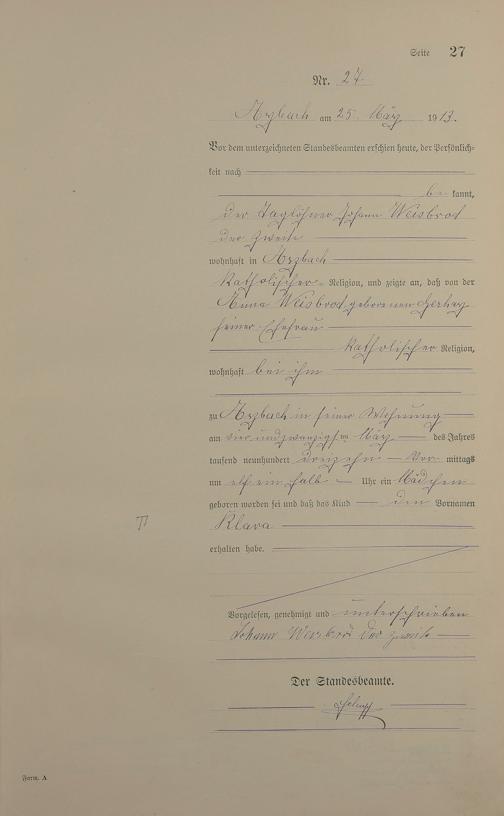 Seite 27
Nr. 27
Arzbach am 25. März 1913.
Vor dem unterzeichneten Standesbeamten erschien heute, der Persönlich-
keit nach
be kannt,
der Taglöhner Johann Weisbrod
der Zweite
wohnhaft in Arzbach
katholischer Religion, und zeigte an, daß von der
Anna Weisbrod geborenen
seiner Ehefrau
katholischer Religion,
wohnhaft bei ihm
zu Arzbach in seiner Wohnung
am vierundzwanzigsten März des Jahres
tausend neunhundert dreizehn Vor mittags
um elf ein halb Uhr ein Mädchen
geboren worden sei und daß das Kind den Vornamen
Klara
erhalten habe.
Vorgelesen, genehmigt und unterschrieben
Johann Weisbrod der zweite
Der Standesbeamte.
Form. A